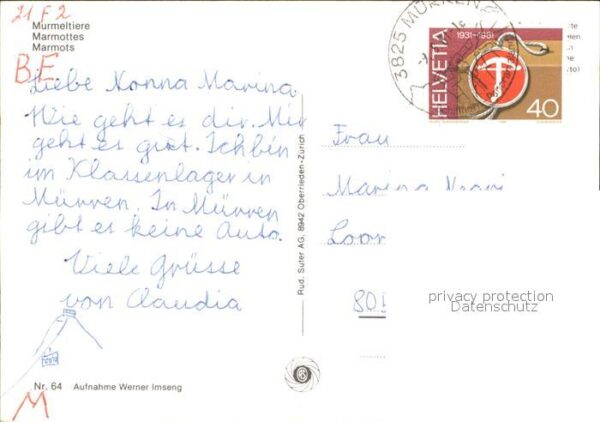 21 F 2
Murmeltiere
Marmottes
Marmots
BE
Liebe Nonna Marina
Wie geht es dir. Mir
geht es gut. Ich bin
im Klassenlager in
Mürren. In Mürren
gibt es keine Auto.
Viele Grüsse
von Claudia
Nr. 64 Aufnahme Werner Imseng
M
Rud. Suter AG, 8942 Oberrieden-Zürich
3825 MÜRREN
1931-1981
HELVETIA
40
Frau
Marina
801
privacy protection
Datenschutz